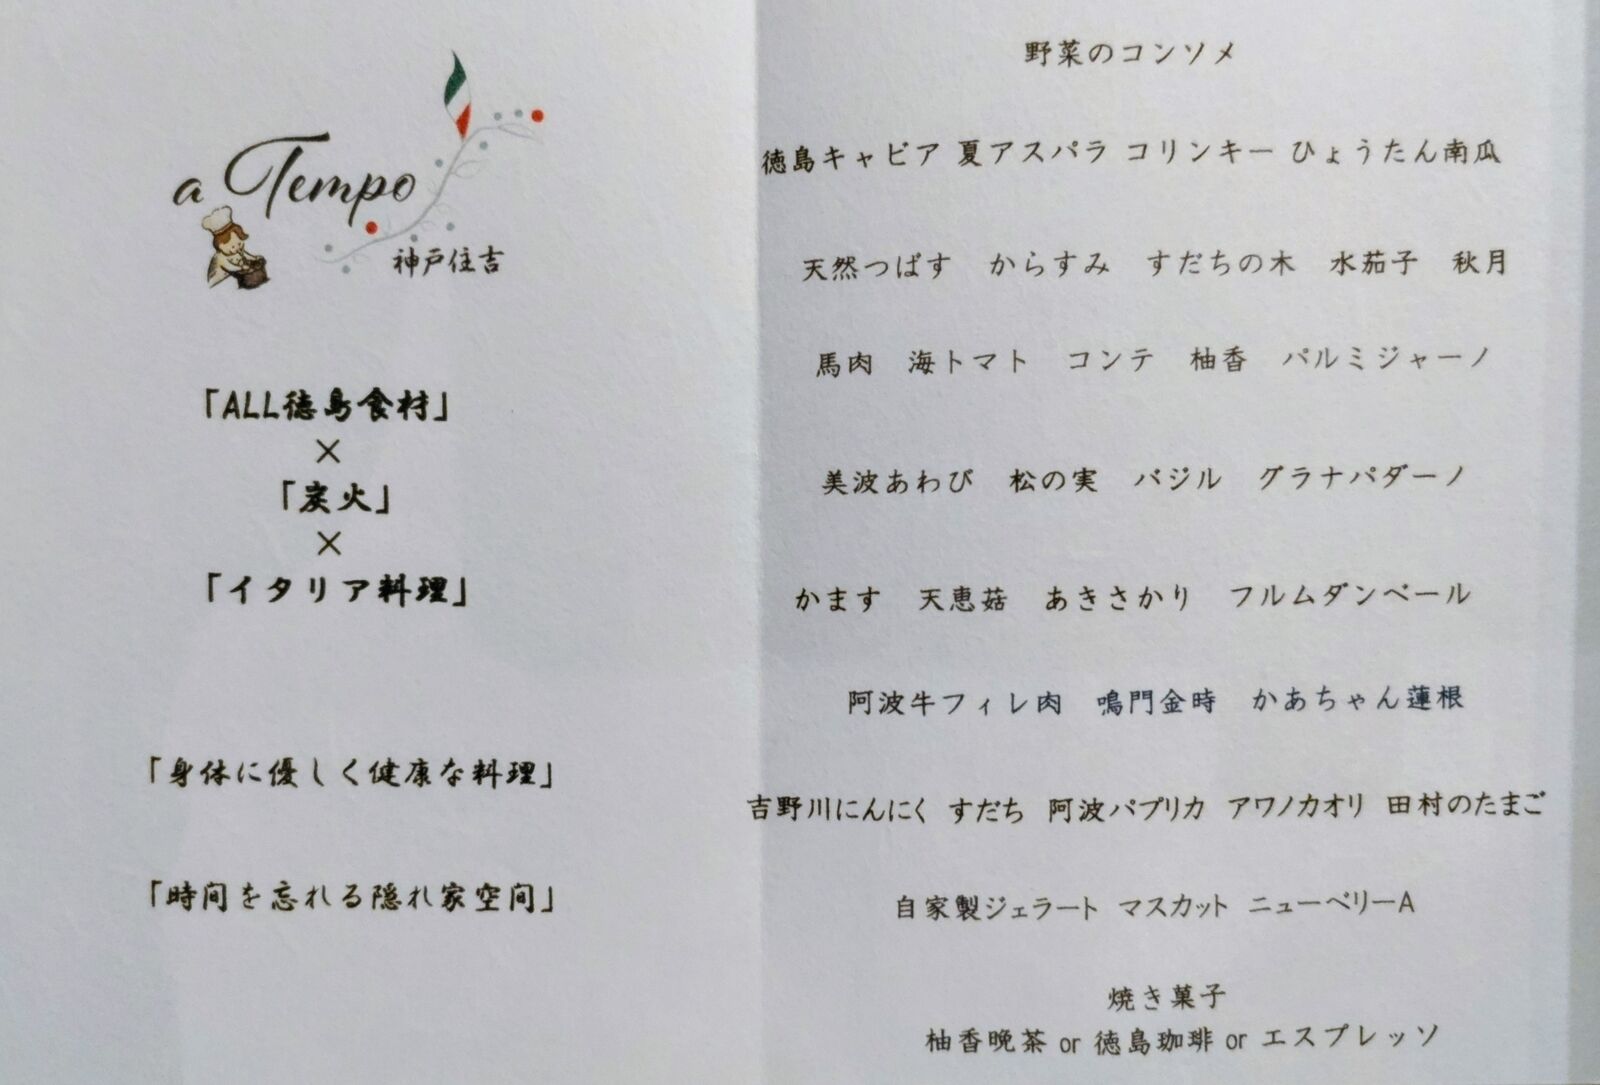 a Tempo
神戸住吉
「ALL徳島食材」
×
「炭火」
×
「イタリア料理」
「身体に優しく健康な料理」
「時間を忘れる隠れ家空間」
野菜のコンソメ
徳島キャビア 夏アスパラ コリンキー ひょうたん南瓜
天然つばす からすみ すだちの木 水茄子 秋月
馬肉 海トマト コンテ 柚香 パルミジャーノ
美波あわび 松の実 バジル グラナパダーノ
かます 天恵菇 あきさかり フルムダンベール
阿波牛フィレ肉 鳴門金時 かあちゃん蓮根
吉野川にんにく すだち 阿波パプリカ アワノカオリ 田村のたまご
自家製ジェラート マスカット ニューベリーA
焼き菓子
柚香晩茶 or 徳島珈琲 or エスプレッソ